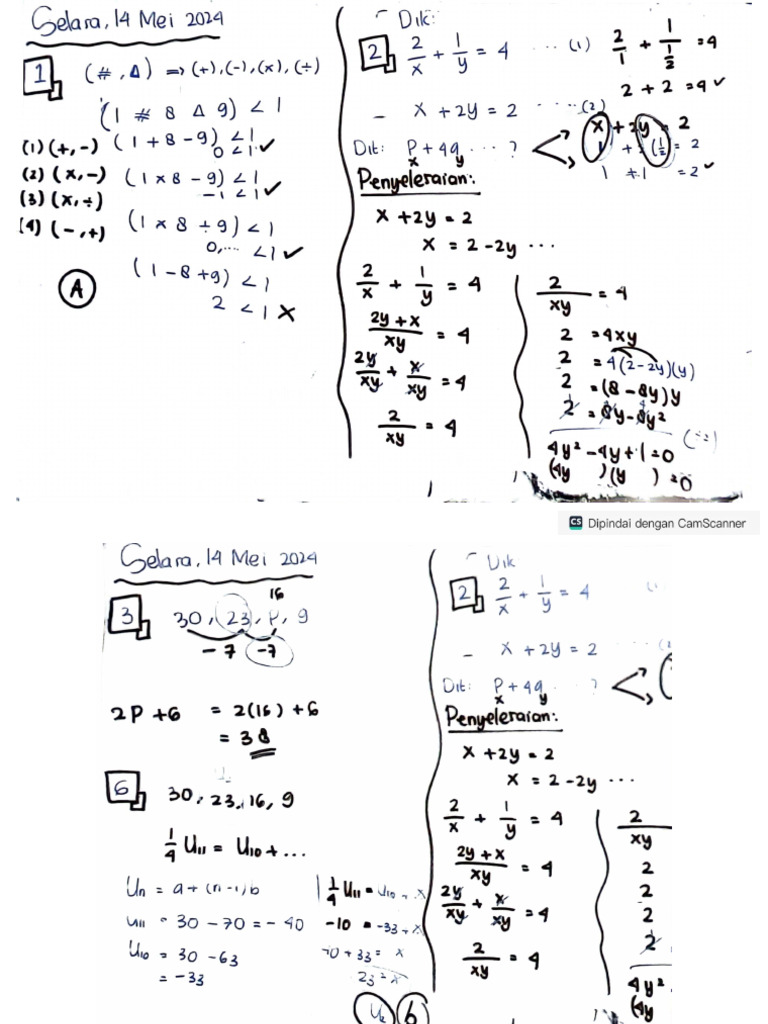 Selasa, 14 Mei 2024
1 (#, Δ) ⇒ (+), (-), (x), (÷)
(1 # 8 Δ 9) < 1
(1) (+, -) (1 + 8 - 9) < 1
0 < 1 ✓
(2) (x, -) (1 x 8 - 9) < 1
-1 < 1 ✓
(3) (x, ÷)
(1 x 8 ÷ 9) < 1
0,... < 1 ✓
(4) (-, +)
(1 - 8 + 9) < 1
2 < 1 X
A
- Dik:
2 2/x + 1/y = 4 ... (1)
- x + 2y = 2 ... (2)
Dit: P + 4q ... ?
x y
2/1 + 1/(1/2) = 4
2 + 2 = 4 ✓
x + 2y = 2
1 + 2(1/2) = 2
1 + 1 = 2 ✓
Penyelesaian:
x + 2y = 2
x = 2 - 2y ...
2/x + 1/y = 4
2y + x/xy = 4
2y/xy + x/xy = 4
2/xy = 4
2/xy = 4
2 = 4xy
2 = 4(2 - 2y)(y)
2 = (8 - 8y)y
2 = 8y - 8y²
4y² - 4y + 1 = 0 (÷2)
(4y )(y ) = 0
CS Dipindai dengan CamScanner
Selasa, 14 Mei 2024
16
3 30, 23, P, 9
-7 -7
2P + 6 = 2(16) + 6
= 38
6 30, 23, 16, 9
1/4 U11 = U10 + ...
Un = a + (n-1)b
U11 = 30 - 70 = -40
U10 = 30 - 63
= -33
1/4 U11 = U10 + x
-10 = -33 + x
-10 + 33 = x
23 = x
- Dik
2 2/x + 1/y = 4
- x + 2y = 2
Dit: P + 4q ... ?
x y
Penyelesaian:
x + 2y = 2
x = 2 - 2y ...
2/x + 1/y = 4
2y + x/xy = 4
2y/xy + x/xy = 4
2/xy = 4
2/xy
2
2
2
2
4y²
(4y